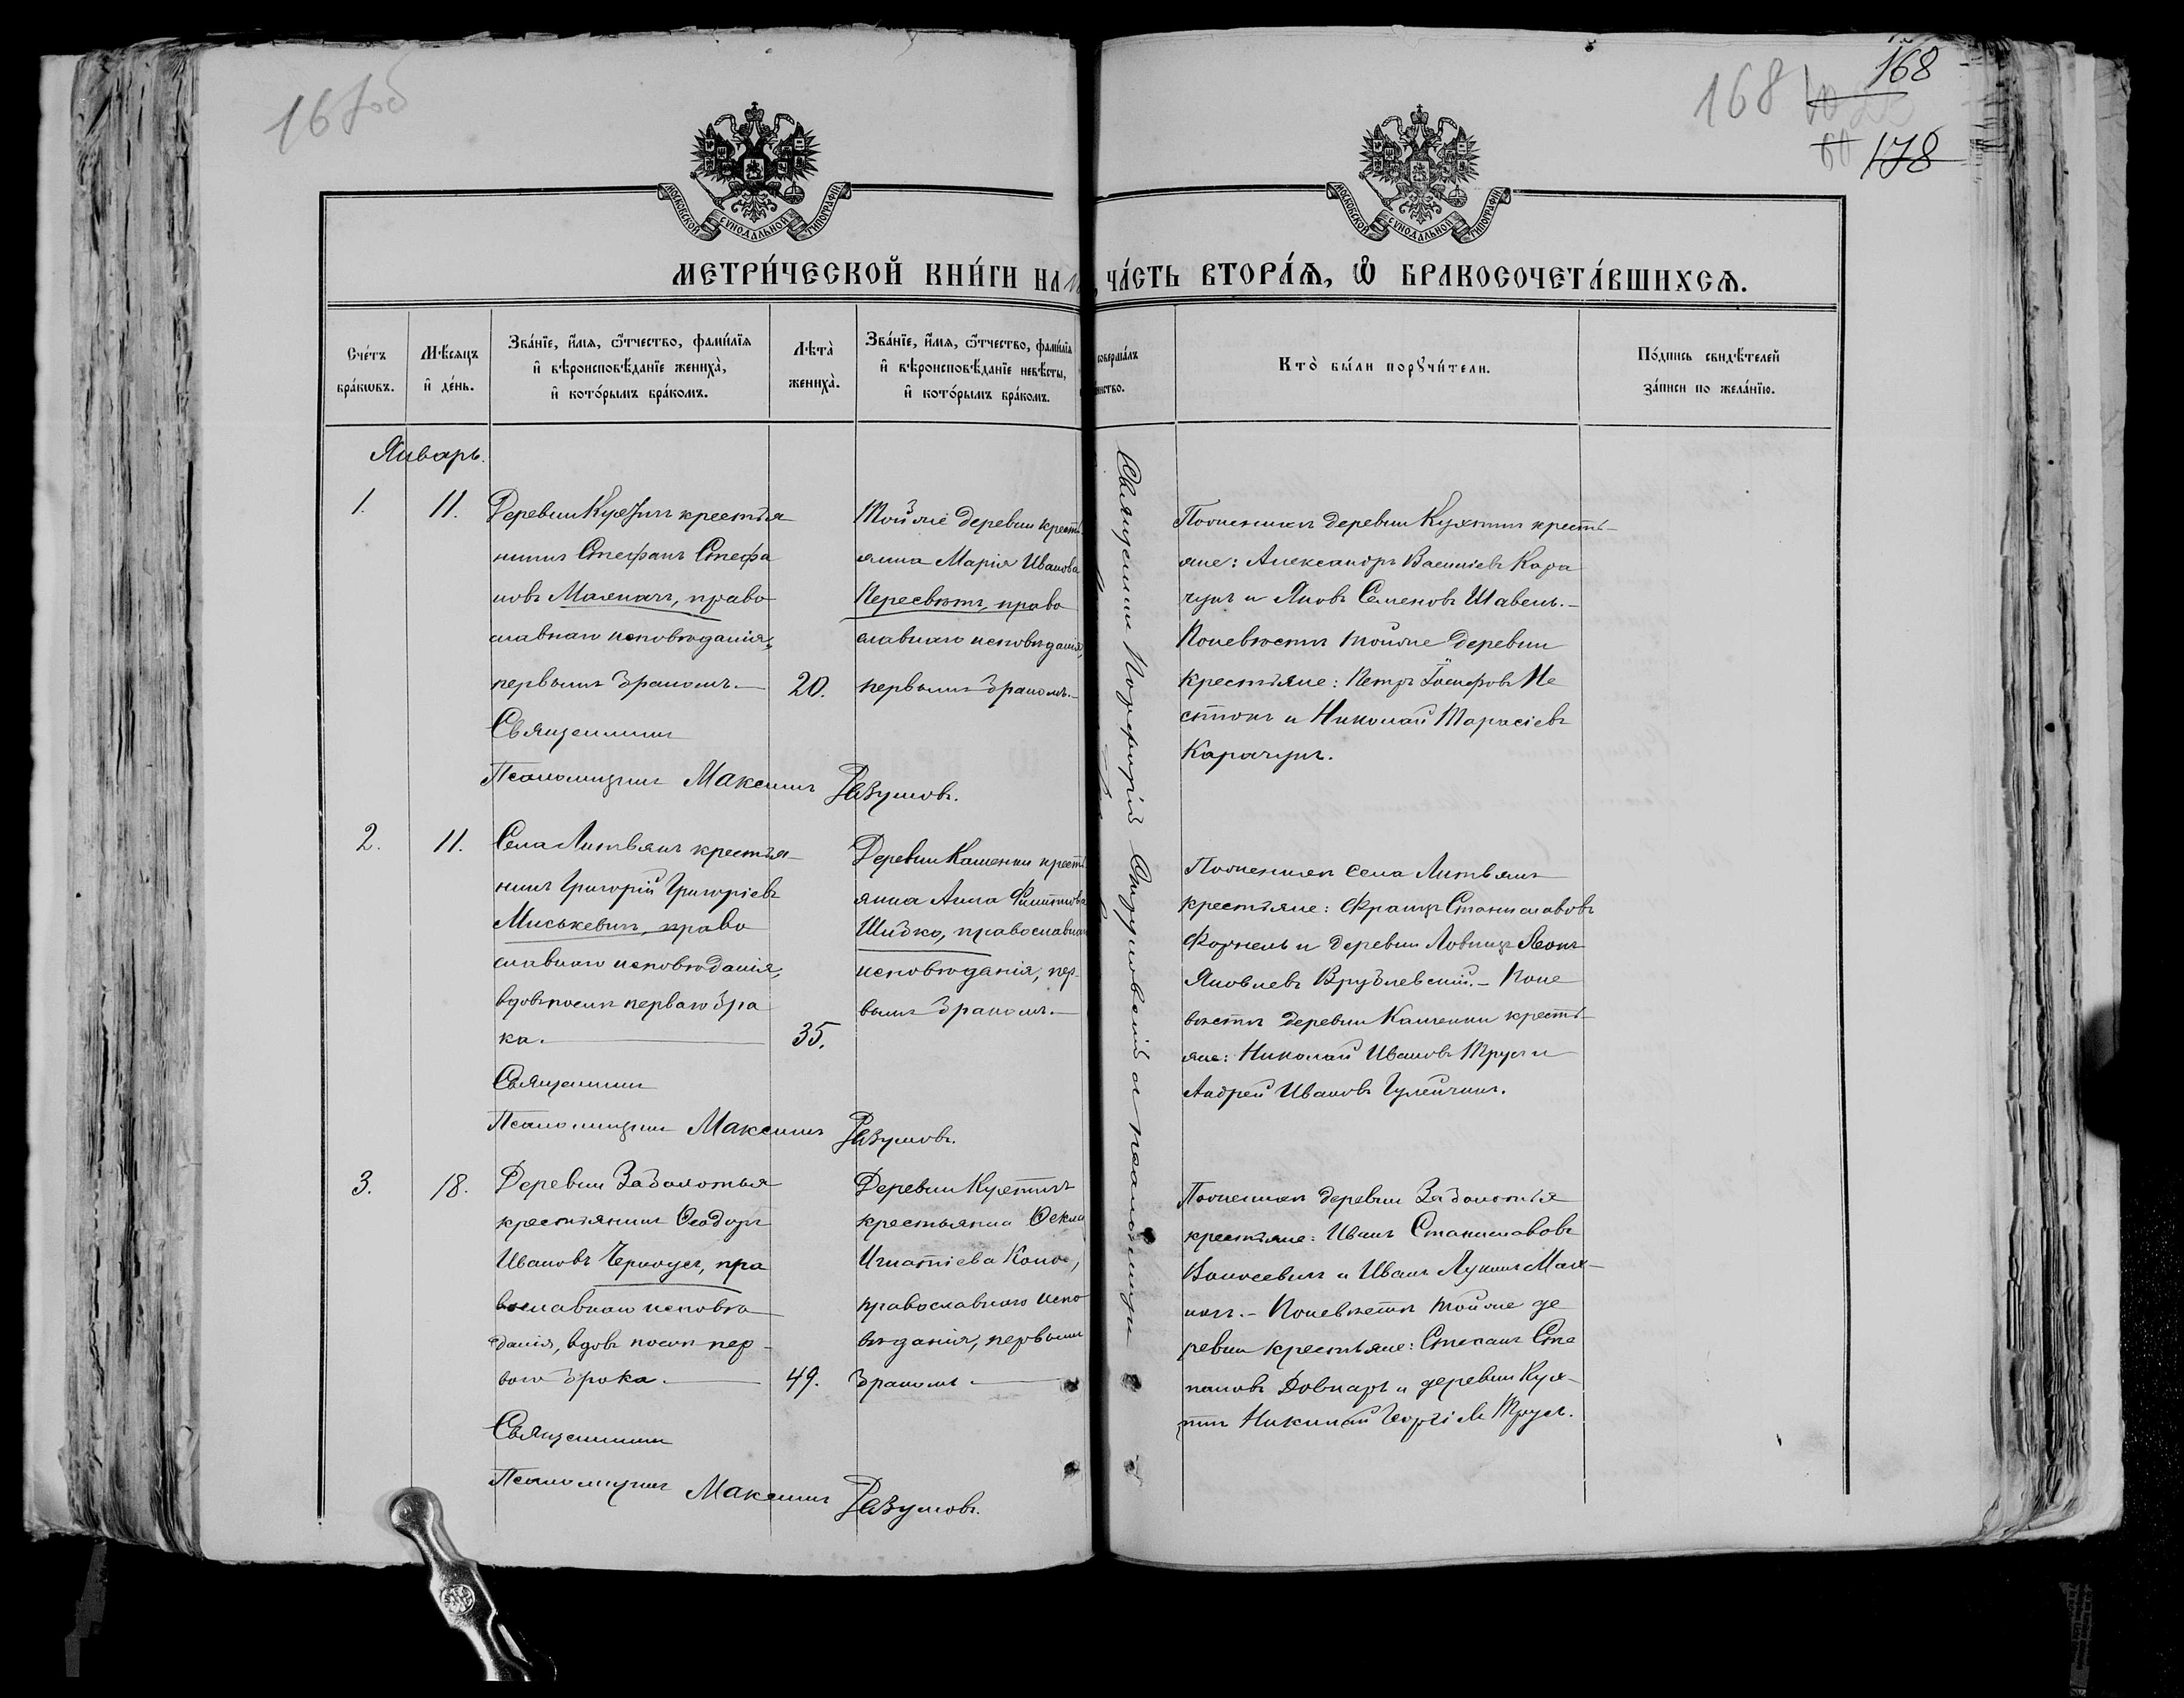 167об
168
168
178
МОСКОВСКОЙ СѴНОДАЛЬНОЙ ТИПОГРАФІИ
МОСКОВСКОЙ СѴНОДАЛЬНОЙ ТИПОГРАФІИ
МЕТРИ́ЧЕСКОЙ КНИ́ГИ НА
ЧА́СТЬ ВТОРА́Ѧ, Ѽ БРАКОСОЧЕТА́ВШИХСѦ.
Сче́тъ бра́кѡвъ.
Мѣ́сяцъ и҆ де́нь.
Зва́нїе, и҆́мѧ, ѻ҆́тчество, фами́лїѧ и҆ вѣроисповѣ́данїе жениха̀, и҆ кото́рымъ бра́комъ.
Лѣ́та жениха̀.
Зва́нїе, и҆́мѧ, ѻ҆́тчество, фами́лїѧ и҆ вѣроисповѣ́данїе невѣ́сты, и҆ кото́рымъ бра́комъ.
соверша́лъ
Кто̀ бы́ли порꙋчи́тели.
По́дпись свидѣ́телей за́писи по жела́нїю.
Январь.
1.
11.
крестья
нинъ Стефанъ Стефа
новъ Малянъ, право
славнаго исповѣданія,
первымъ бракомъ.
20.
Священникъ
Псаломщикъ Максимъ Разумовъ.
Тойже деревни кресть
янка Марія Иванова
Пересвѣтъ, право
славнаго исповѣданія,
первымъ бракомъ.
Священникъ Порфирій
и псаломщикъ
По женихѣ деревни Кухтичъ кресть-
яне: Александръ Василіевъ Кара
чунъ и Яковъ Семеновъ Шавель.-
По невѣстѣ тойже деревни
крестьяне: Петръ Іосифовъ
и Николай Тарасіевъ
Карачунъ.
2.
11.
Села Литвянъ крестья-
нинъ Григорій Григоріевъ
Миськевичъ, право
славнаго исповѣданія,
вдовъ послѣ перваго бра
ка.
35.
Священникъ
Псаломщикъ Максимъ Разумовъ.
Деревни Каменки кресть
янка Анна Филиппова
Шибко, православнаго
исповѣданія, пер-
вымъ бракомъ.
По женихѣ села Литвянъ
крестьяне: Францъ Станиславовъ
и деревни
Яковлевъ Врублевскій.- По не
вѣстѣ деревни Каменки кресть-
яне: Николай Ивановъ Трусъ и
Андрей Ивановъ
3.
18.
Деревни Заболотья
крестьянинъ Ѳеодоръ
Ивановъ Черноусъ, пра
вославнаго исповѣ
данія, вдовъ послѣ пер-
ваго брака.
49.
Священникъ
Псаломщикъ Максимъ Разумовъ.
Деревни Кухтичъ
крестьянка Ѳекла
Игнатіева
православнаго испо
вѣданія, первымъ
бракомъ
По женихѣ деревни Заболотья
крестьяне: Иванъ Станиславовъ
Волосевичъ и Иванъ Лукинъ
По невѣстѣ тойже де
ревни крестьяне: Степанъ Сте
пановъ Довнаръ и деревни Кух-
тичъ Николай Георгіевъ Трусъ.